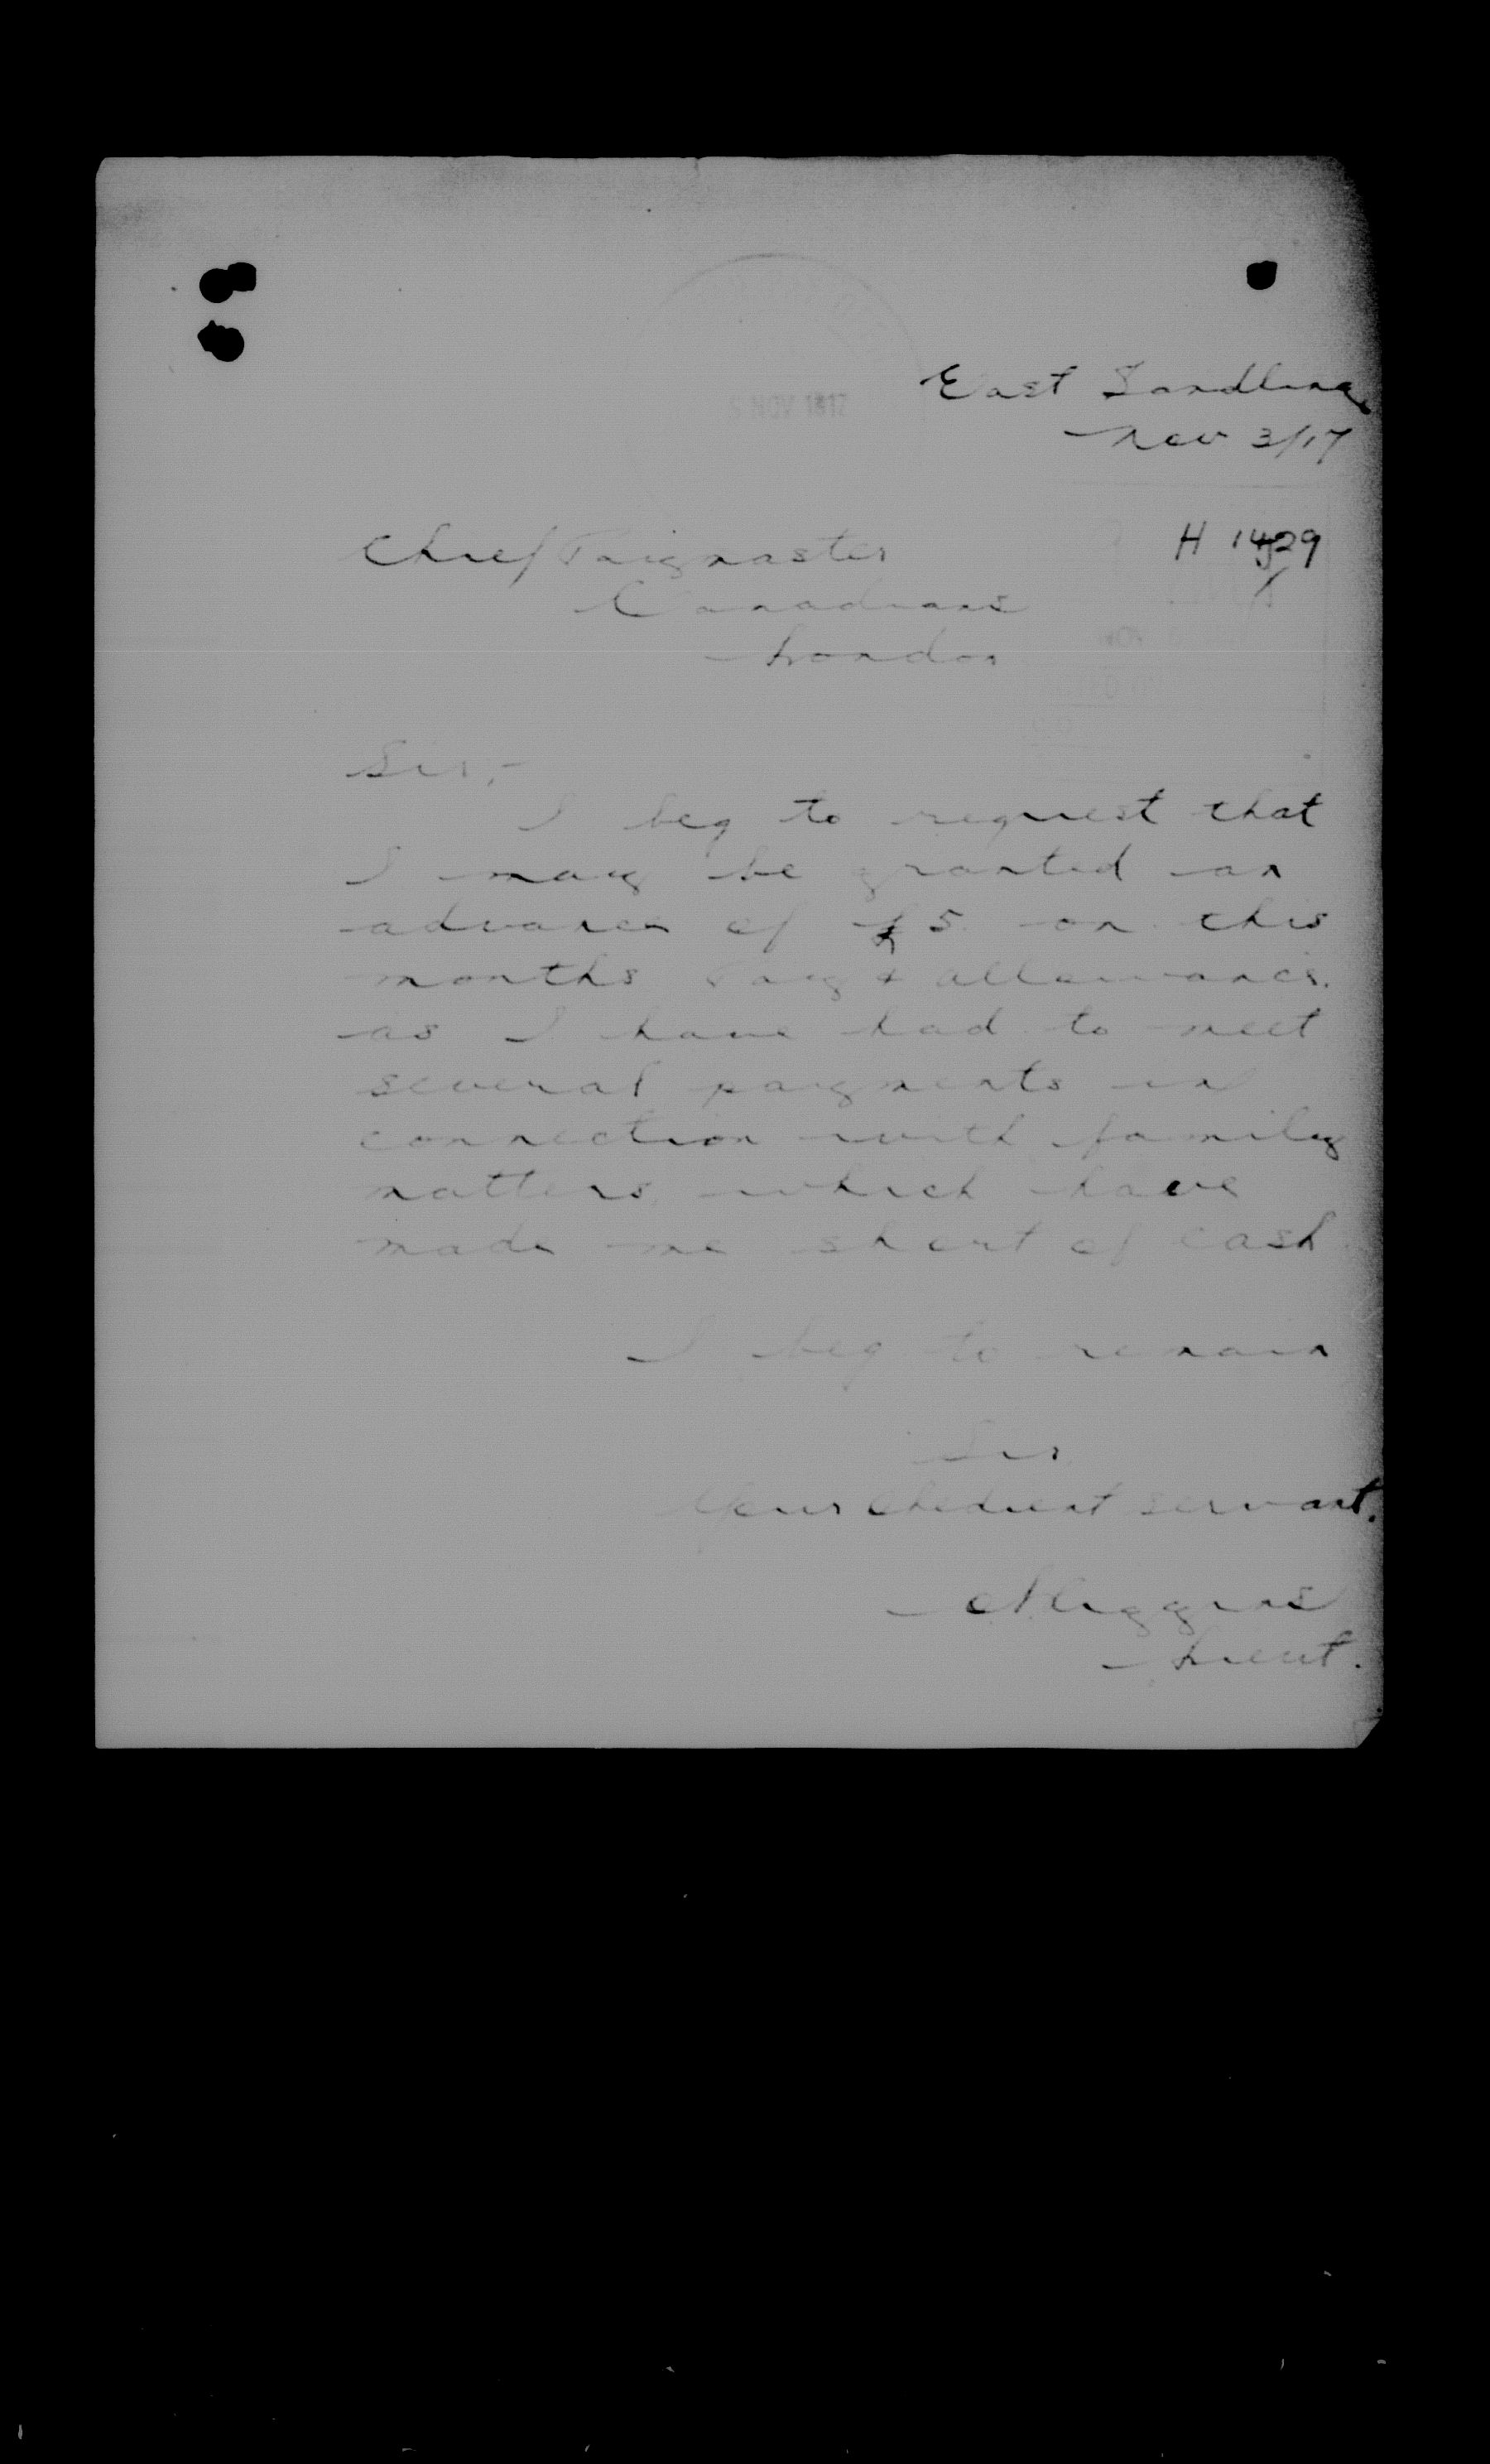 5 NOV 1917
East Sandling
Nov 3/17
H 1429
Chief Paymaster
Canadians
London
Sir,-
I beg to request that
I may be granted an
advance of £5 on this
months Pay & allowances.
as I have had to meet
several payments in
connection with family
matters which have
made me short of cash
I beg to remain
Sir
Your Obedient servant.
Higgins
Lieut.